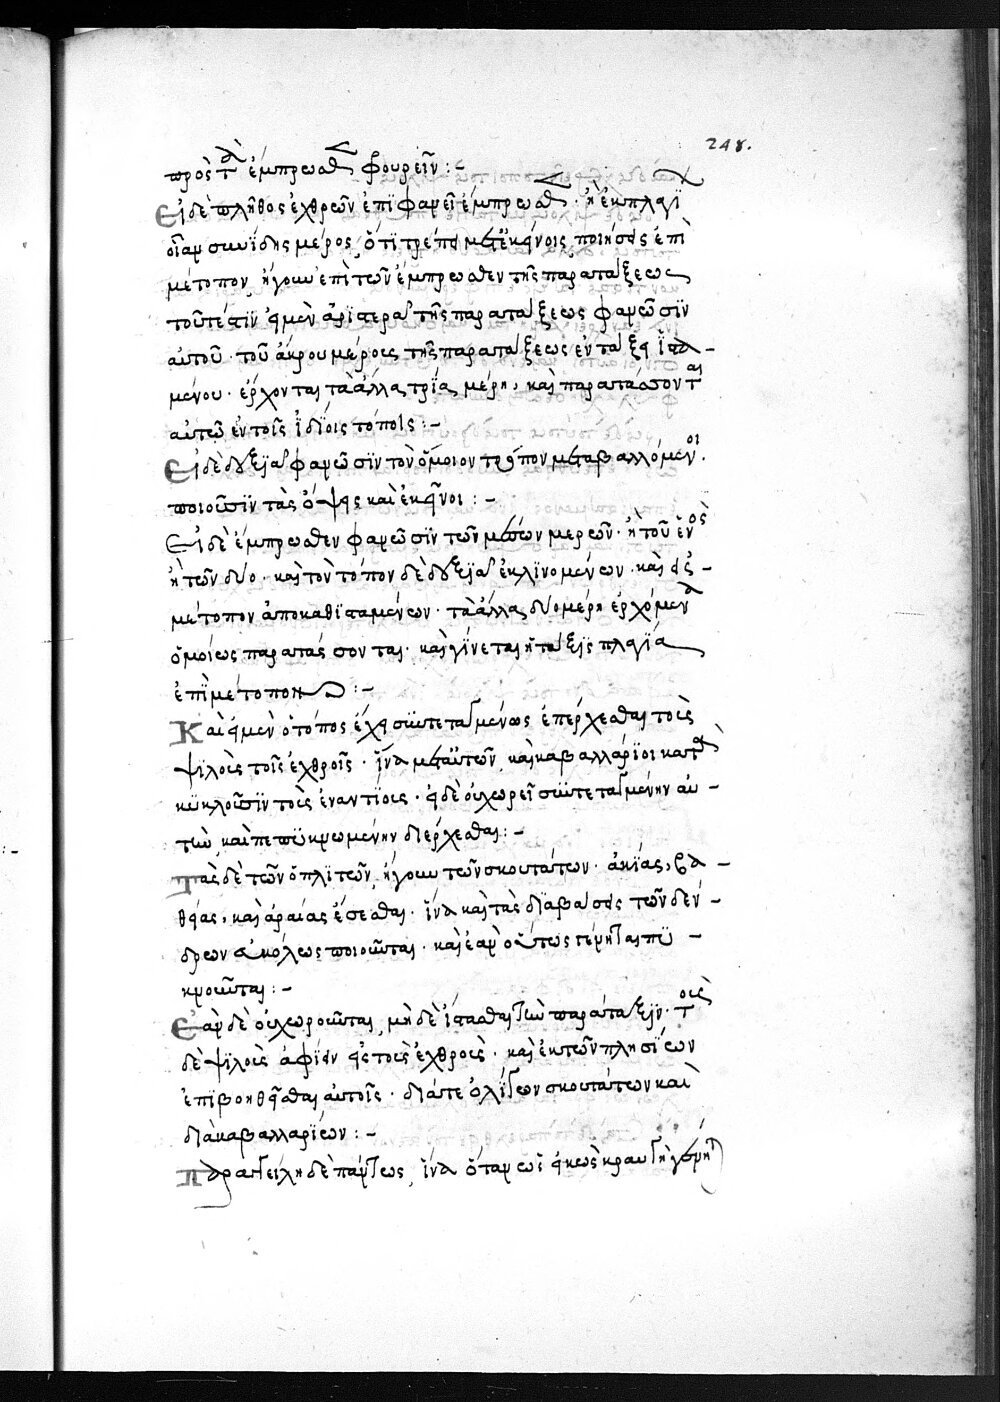 248.
πρὸς τὰ ἔμπροσθεν φουρεῖν :-
Εἰ δὲ πλῆθος ἐχθρῶν ἐπιφανεῖ ἔμπροσθεν· ἢ ἐκ πλαγί
οἱανοῦν δὴ μέρος, ὅτι τρέπει μετ' ἐκείνοις ποιήσεις ἐπὶ
μέτοπον ἤγουν ἐπὶ τῶν ἔμπροσθεν τῆς παρατάξεως
τοῦτέστιν εἰ μὲν ἀριστερὰ τῆς παρατάξεως φανῶσιν
αὐτοῦ· τοῦ ἄκρου μέρους τῆς παρατάξεως ἐν τάξει ἱστα-
μένου· ἔρχονται τὰ ἄλλα τρία μέρη, καὶ παρατάσσονται
αὐτῶ ἐν τοῖς ἰδίοις τόποις :-
Εἰ δὲ δεξιὰ φανῶσιν τὸν ὅμοιον τρόπον μεταβαλλόμενοι.
ποιοῦσιν τὰς ὄψεις καὶ ἐκεῖνοι :-
Εἰ δὲ ἔμπροσθεν φανῶσιν τῶν μέσων μερῶν· ἢ τοῦ ἑνὸς
ἢ τῶν δύο· καὶ τὸν τόπον δὲ δεξιὰ ἐκλινομένων· καὶ εἰς -
μέτοπον ἀποκαθισταμένων· τὰ ἄλλα δύο μέρη ἐρχόμενα
ὁμοίως παρατάσσονται· καὶ γίνεται ἡ τάξις πλαγία
ἐπὶ μέτοπον :-
Καὶ εἰ μὲν ὁ τόπος ἔχει συντεταγμένως ἐπέρχεσθαι τοὺς
ψιλοὺς τοῖς ἐχθροῖς· ἵνα μετ' αὐτῶν καὶ καβαλλάριοι κατὰ
κυκλοῦσιν τοὺς ἐναντίους· εἰ δὲ οὐ χωρεῖ συντεταγμένην αὐ-
τὴν καὶ πεπυκνωμένην διέρχεσθαι :-
Τὰς δὲ τῶν ὁπλιτῶν, ἤγουν τῶν σκουτάτων· ἀκίας, βα-
θείας, καὶ ἀραίας ἔσεσθαι· ἵνα καὶ τὰς διαβάσεις τῶν δέν-
δρων εὐκόλως ποιοῦνται· καὶ ἐὰν οὕτως γένηται πυ-
κνοῦνται :-
Ἐὰν δὲ οὐ χωροῦνται μὴ δὲ ἵστασθαι τὴν παράταξιν· τοὺς
δὲ ψιλοὺς ἀφιέν εἰς τοὺς ἐχθροὺς· καὶ ἐκ τῶν πλησίων
ἐπιβοηθεῖσθαι αὐτοῖς· διά τε ὀλίγων σκουτάτων καὶ
διὰ καβαλλαρίων :-
Παραγγείλη δὲ πάντως, ἵνα ὅταν ὡς εἰκὸς κραυγὴ γένηται